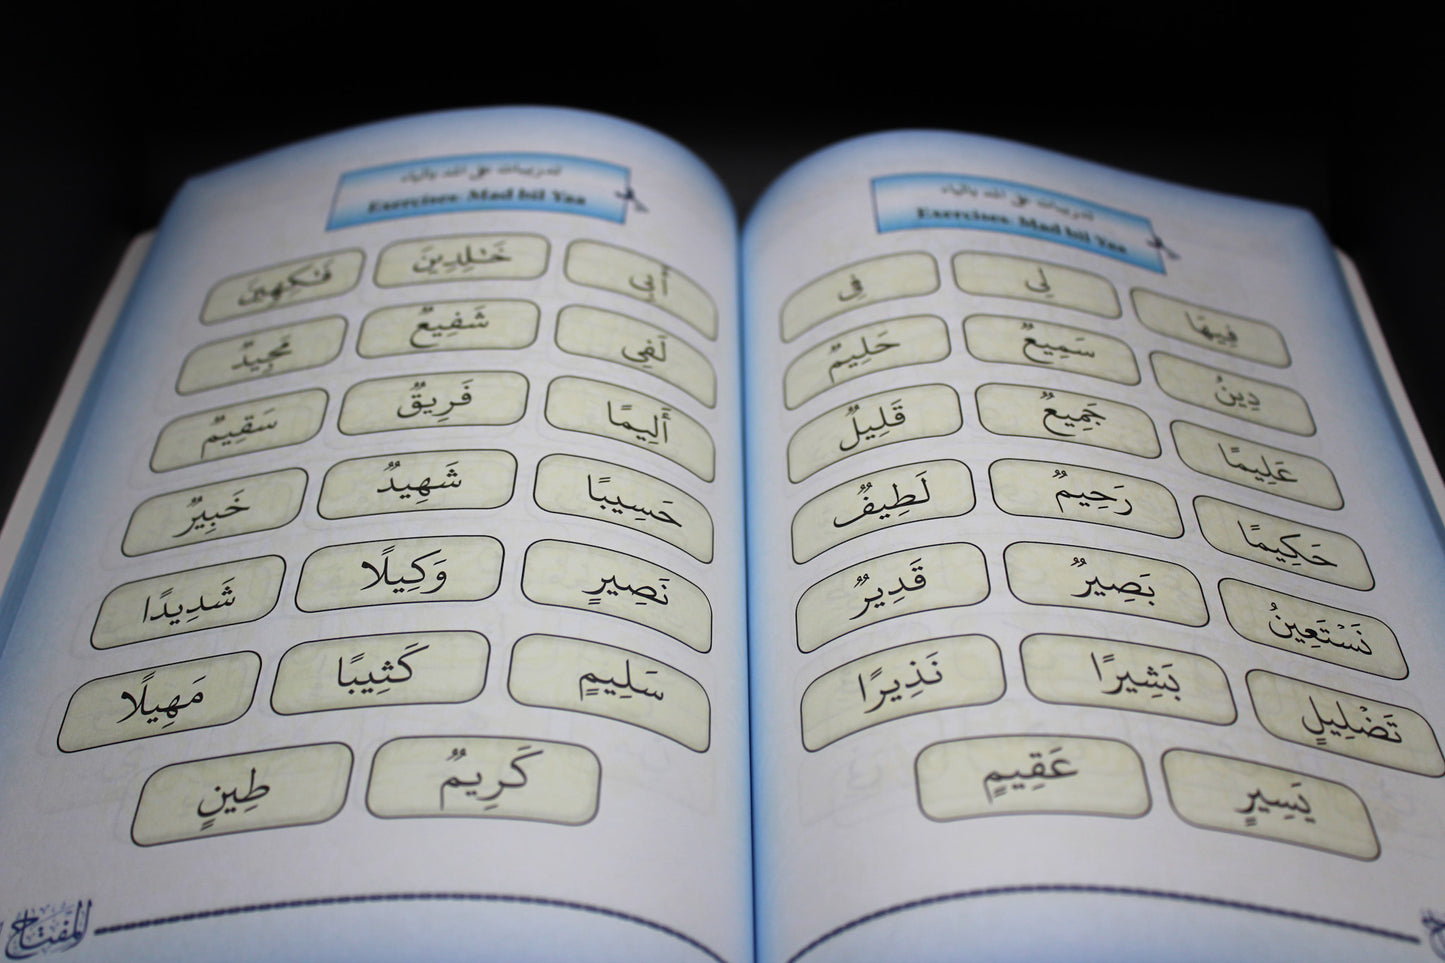 تدريبات على المد بالياء
Exercises: Mad bil Yaa
فِيهَا لِي فِي
دِينُ سَمِيعٌ حَلِيمٌ
عَلِيمًا جَمِيعٌ قَلِيلٌ
حَكِيمًا رَحِيمٌ لَطِيفٌ
نَسْتَعِينُ بَصِيرٌ قَدِيرٌ
تَضْلِيلٍ بَشِيرًا نَذِيرًا
عَقِيمٍ
تدريبات على المد بالياء
Exercises: Mad bil Yaa
أَبِي خَٰلِدِينَ فَٰكِهِينَ
لَفِي شَفِيعٌ مَجِيدٌ
أَلِيمًا فَرِيقٌ سَقِيمٌ
حَسِيبًا شَهِيدٌ خَبِيرٌ
نَصِيرٍ وَكِيلًا شَدِيدًا
سَلِيمٍ كَثِيبًا مَهِيلًا
كَرِيمٌ طِينٍ
المفتاح